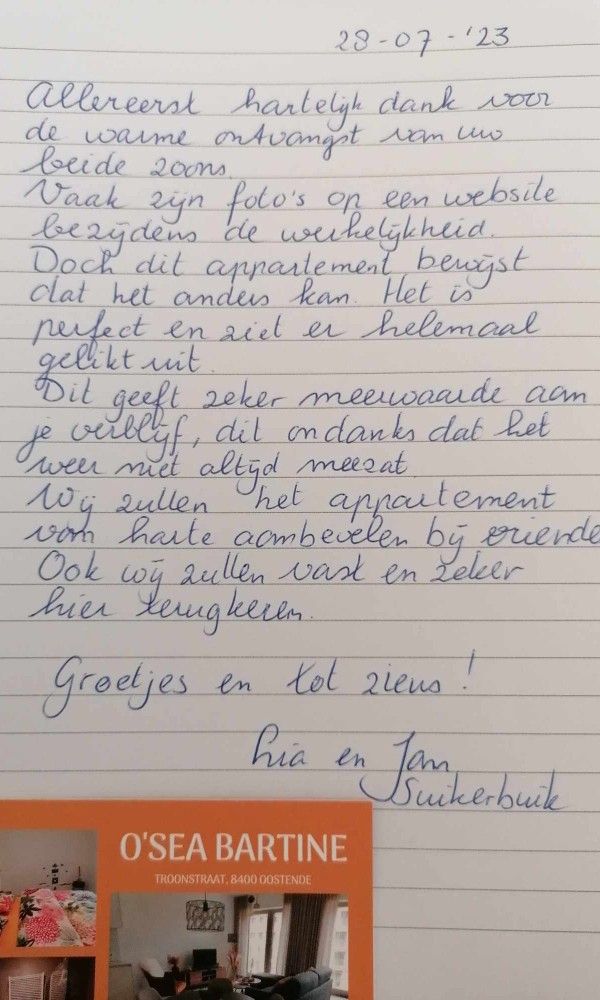 28-07-'23
Allereerst hartelijk dank voor
de warme ontvangst van uw
beide zoons.
Vaak zijn foto's op een website
bezijdens de werkelijkheid.
Doch dit appartement bewijst
dat het anders kan. Het is
perfect en ziet er helemaal
gelikt uit.
Dit geeft zeker meerwaarde aan
je verblijf, dit ondanks dat het
weer niet altijd meezat
Wij zullen het appartement
van harte aanbevelen bij vriende
Ook wij zullen vast en zeker
hier terugkeren.
Groetjes en tot ziens!
en Jan
Suikerbuik
O'SEA BARTINE
TROONSTRAAT, 8400 OOSTENDE